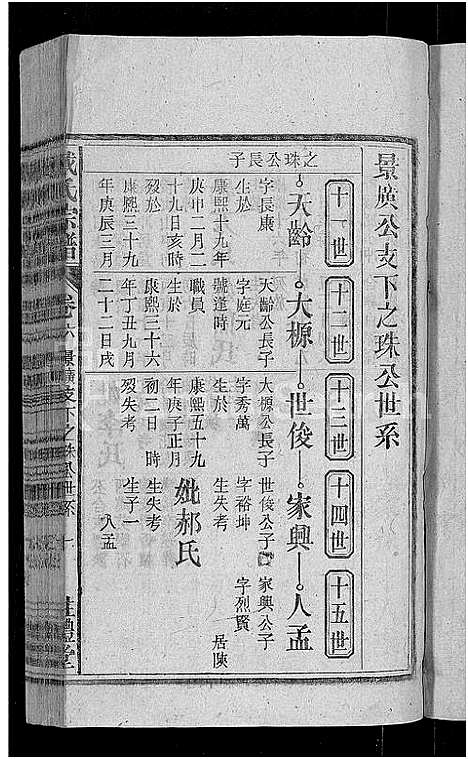 景廣公支下之珠公世系
十一世
十二世
十三世
十四世
十五世
之珠公長子
天齡
大㮣
世俊
家興
人孟
字長康
生於
康熙十九年
庚申二月二
十九日亥時
歿於
康熙三十九
年庚辰三月
天齡公長子
字庭元
號蓬時
職員
生於
康熙三十六
年丁丑九月
二十二日戌
大㮣公長子
字秀萬
生於
康熙五十九
年庚子正月
初二日 時
歿失考
世俊公子
字裕坤
生失考
妣郝氏
生失考
生子一
人孟
家興公子
字烈賢
居陳
戴氏宗譜
卷六 景廣支下之珠公世系
十